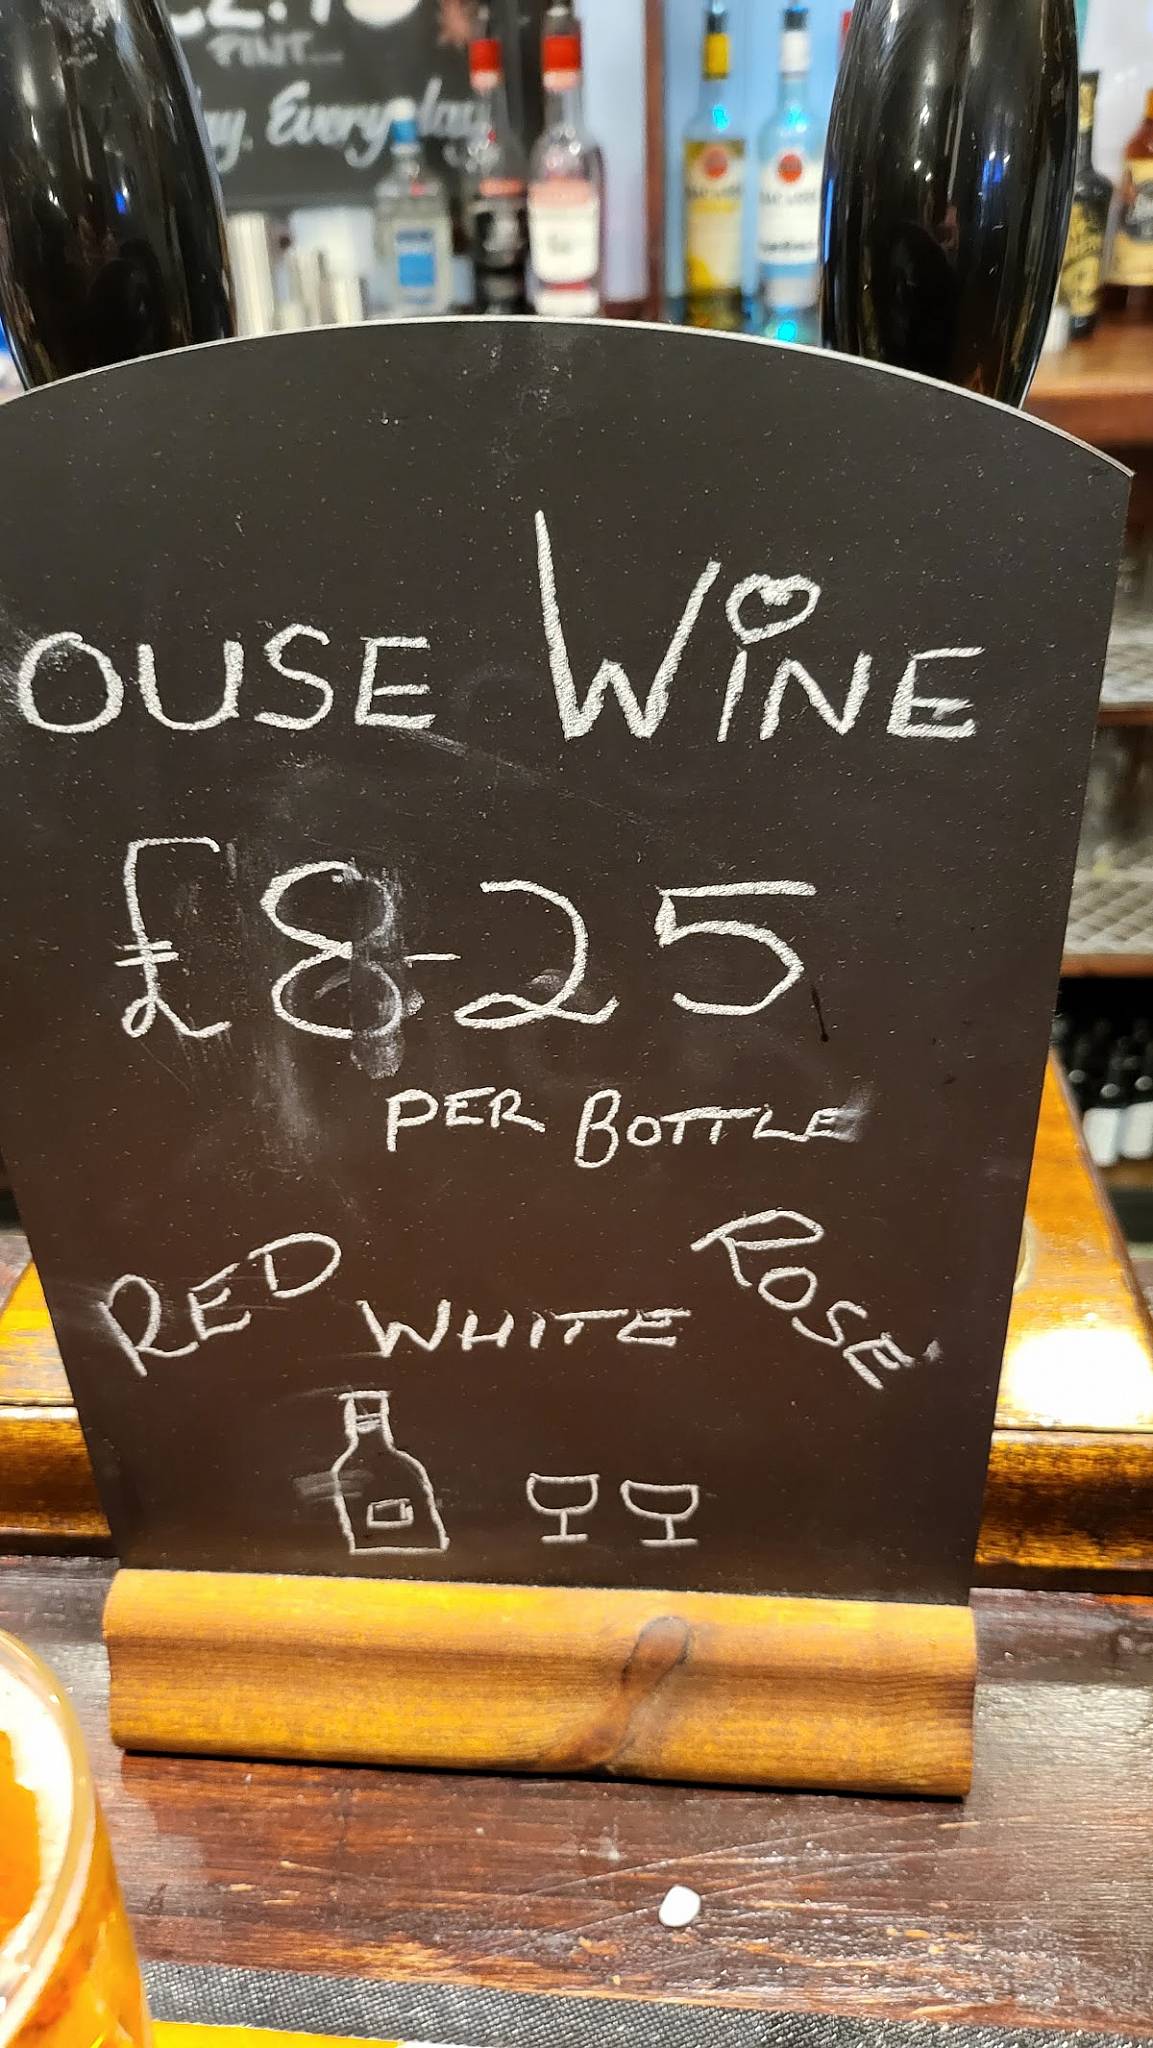 PINT...
Everyday
OUSE WINE
£8-25
PER BOTTLE
RED WHITE ROSÉ